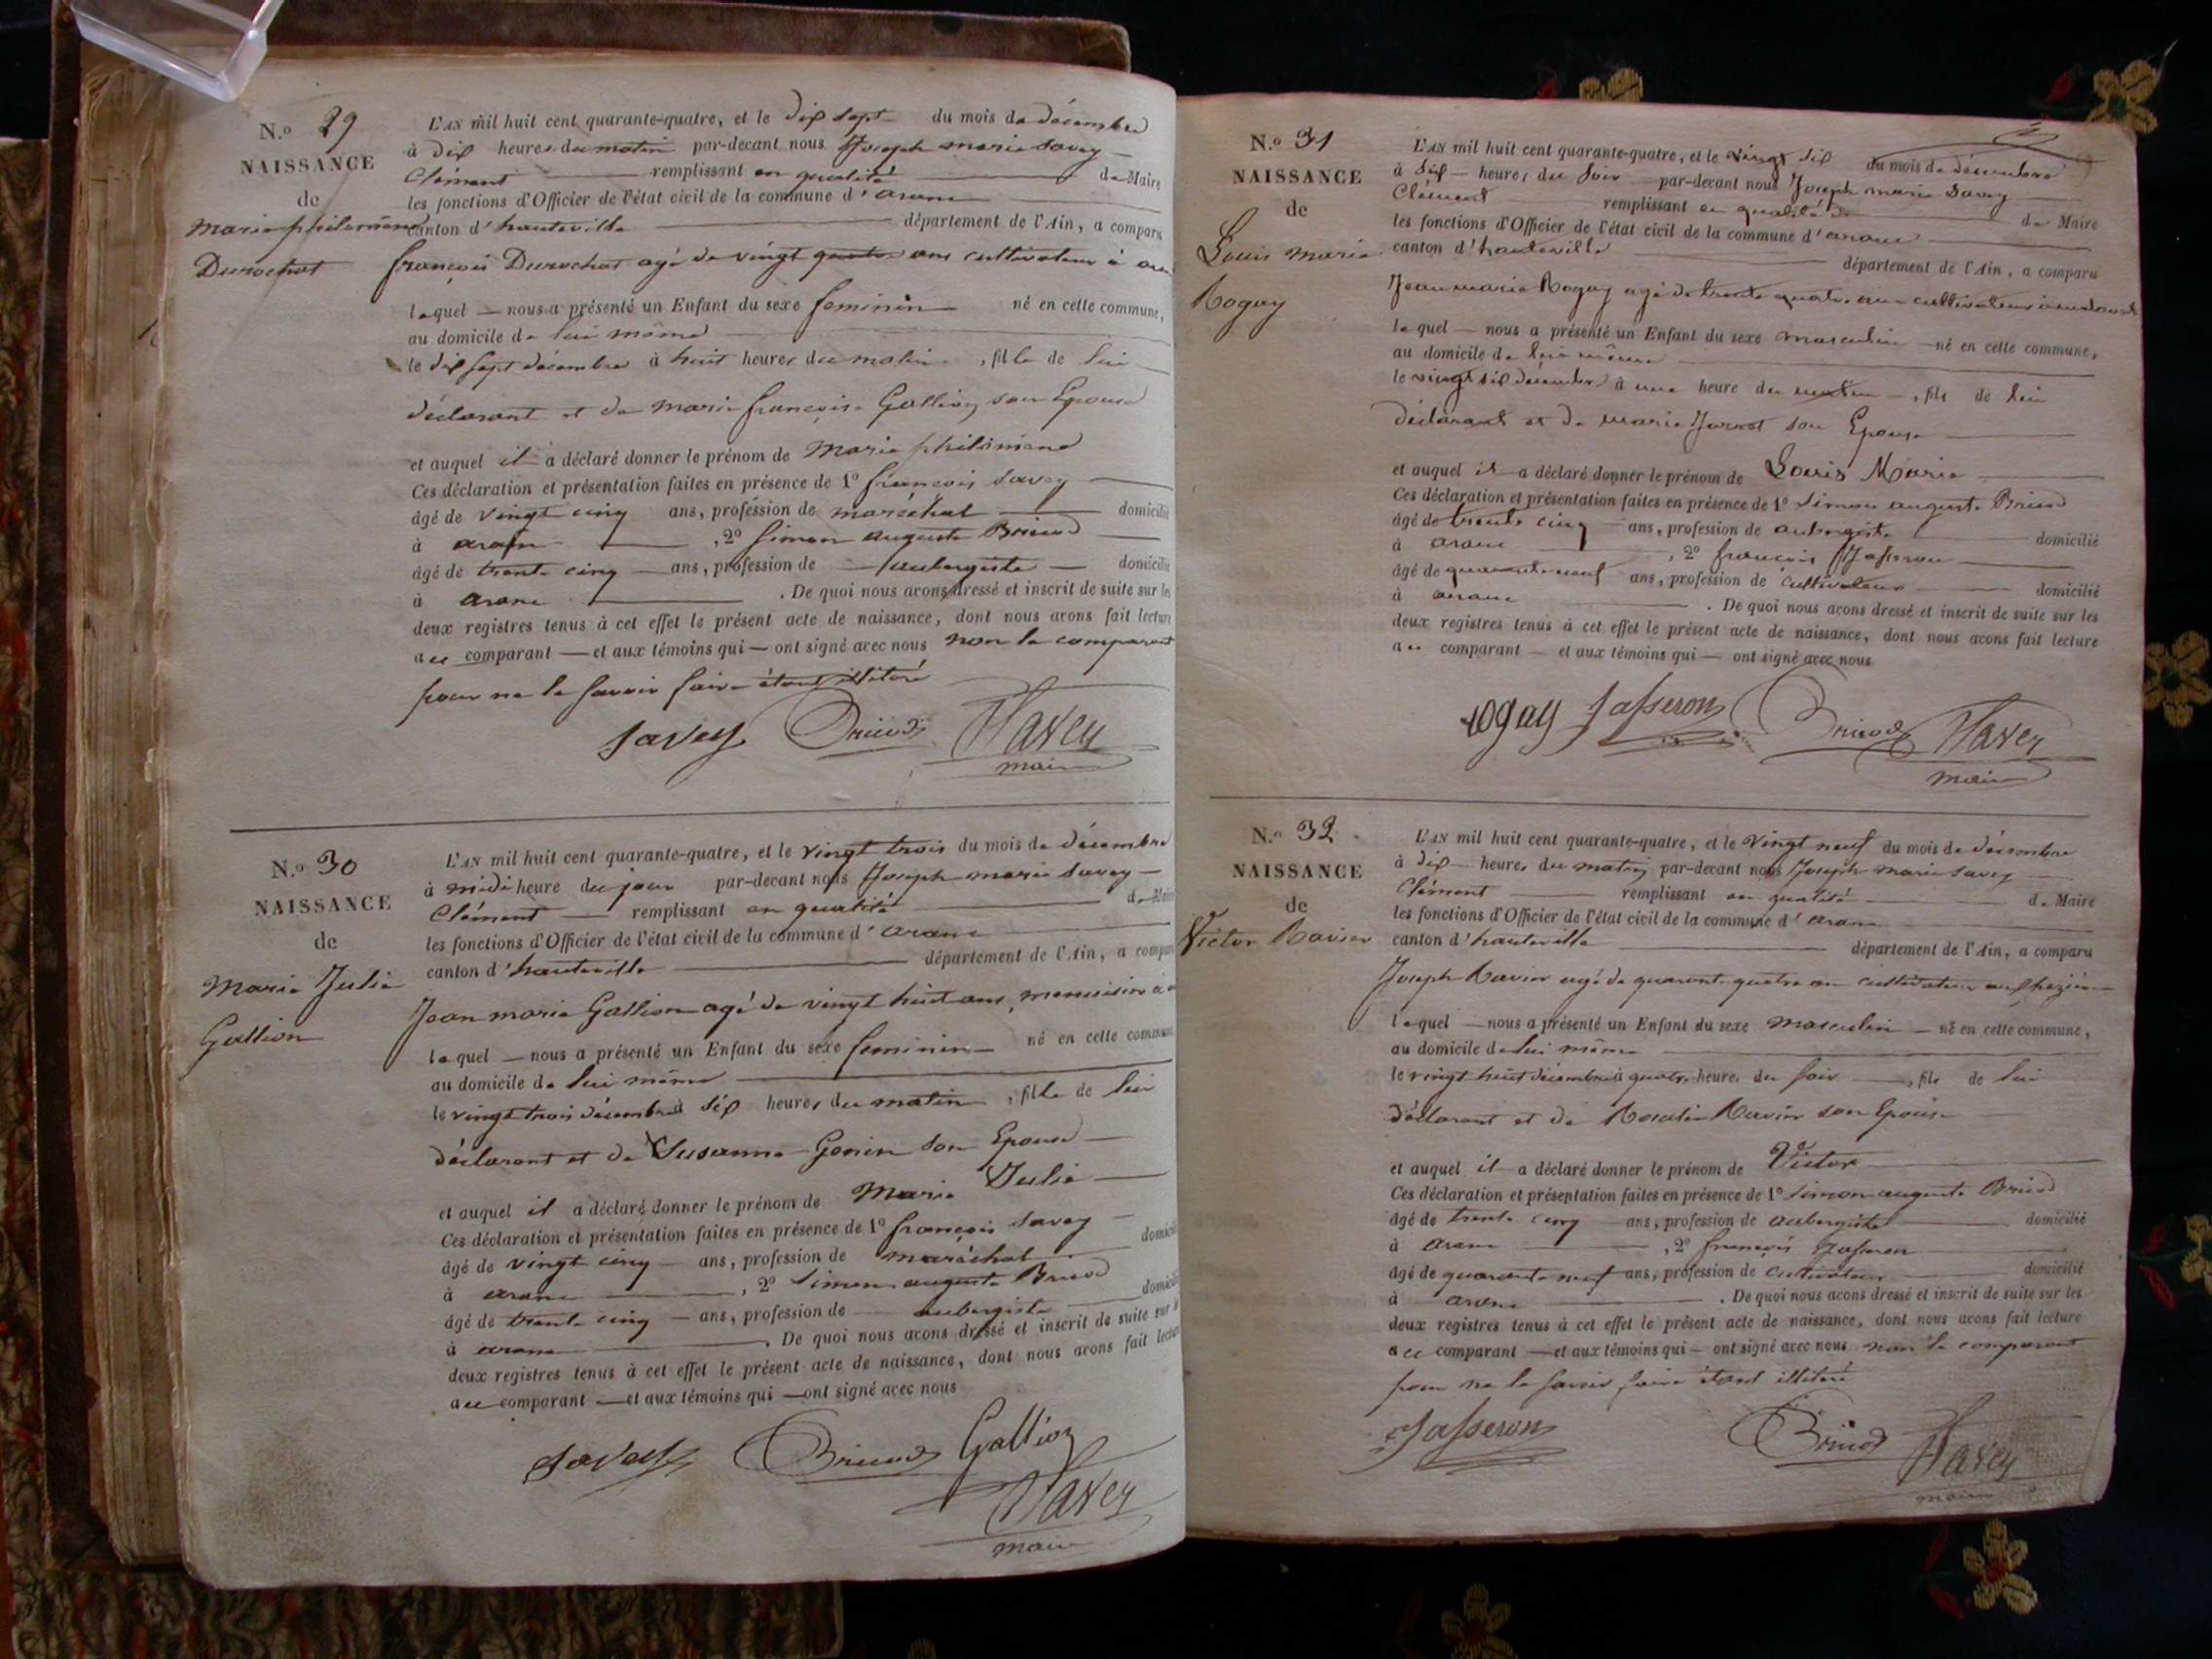 N.o 29
NAISSANCE
de
Marie philomène
Durochat
L'AN mil huit cent quarante-quatre, et le dix sept du mois de décembre
à dix heures du matin par-devant nous Joseph marie Savey
Clément remplissant en qualité de Maire
les fonctions d'Officier de l'état civil de la commune d'aranc
canton d'hauteville département de l'Ain, a comparu
françois Durochat agé de vingt quatre ans cultivateur à
lequel nous a présenté un Enfant du sexe feminin né en cette commune,
au domicile de lui même
le dix sept décembre à huit heures du matin, fille de lui
déclarant et de marie françoise Gallion son Epouse
et auquel il a déclaré donner le prénom de Marie philomène
Ces déclaration et présentation faites en présence de 1o françois Savey
âgé de vingt cinq ans, profession de maréchal domicilié
à aranc, 2o Simon auguste Bricod
âgé de trente cinq ans, profession de aubergiste domicilié
à aranc. De quoi nous avons dressé et inscrit de suite sur les
deux registres tenus à cet effet le présent acte de naissance, dont nous avons fait lecture
au comparant et aux témoins qui ont signé avec nous non le comparant
pour ne le savoir faire étant illitéré
Savey Bricod Savey
maire
N.o 30
NAISSANCE
de
Marie Julie
Gallion
L'AN mil huit cent quarante-quatre, et le vingt trois du mois de décembre
à midi heure du jour par-devant nous Joseph marie Savey
Clément remplissant en qualité de Maire
les fonctions d'Officier de l'état civil de la commune d'aranc
canton d'hauteville département de l'Ain, a comparu
Jean marie Gallion agé de vingt huit ans, menuisier à
lequel nous a présenté un Enfant du sexe feminin né en cette commune
au domicile de lui même
le vingt trois décembre à six heures du matin, fille de lui
déclarant et de Susanne Gonin son Epouse
et auquel il a déclaré donner le prénom de Marie Julie
Ces déclaration et présentation faites en présence de 1o françois Savey
âgé de vingt cinq ans, profession de maréchal domicilié
à aranc, 2o Simon auguste Bricod
âgé de trente cinq ans, profession de aubergiste domicilié
à aranc. De quoi nous avons dressé et inscrit de suite sur
deux registres tenus à cet effet le présent acte de naissance, dont nous avons fait lecture
au comparant et aux témoins qui ont signé avec nous
Savey Bricod Gallion
Savey
maire
N.o 31
NAISSANCE
de
Louis marie
Rogay
L'AN mil huit cent quarante-quatre, et le vingt six du mois de décembre
à six heures du soir par-devant nous Joseph marie Savey
Clément remplissant en qualité de Maire
les fonctions d'Officier de l'état civil de la commune d'aranc
canton d'hauteville département de l'Ain, a comparu
Jean marie Rogay agé de trente quatre ans cultivateur
lequel nous a présenté un Enfant du sexe masculin né en cette commune,
au domicile de lui même
le vingt six décembre à une heure du matin, fils de lui
déclarant et de marie son Epouse
et auquel il a déclaré donner le prénom de Louis Marie
Ces déclaration et présentation faites en présence de 1o Simon auguste Bricod
âgé de trente cinq ans, profession de aubergiste domicilié
à aranc, 2o françois Jasseron
âgé de quarante neuf ans, profession de cultivateur domicilié
à aranc. De quoi nous avons dressé et inscrit de suite sur les
deux registres tenus à cet effet le présent acte de naissance, dont nous avons fait lecture
au comparant et aux témoins qui ont signé avec nous
rogay Jasseron Bricod Savey
maire
N.o 32
NAISSANCE
de
Victor Ravier
L'AN mil huit cent quarante-quatre, et le vingt neuf du mois de décembre
à dix heures du matin par-devant nous Joseph marie Savey
Clément remplissant en qualité de Maire
les fonctions d'Officier de l'état civil de la commune d'aranc
canton d'hauteville département de l'Ain, a comparu
Joseph Ravier agé de quarante quatre an cultivateur
lequel nous a présenté un Enfant du sexe masculin né en cette commune,
au domicile de lui même
le vingt huit décembre à quatre heures du soir, fils de lui
déclarant et de Rosalie Ravier son Epouse
et auquel il a déclaré donner le prénom de Victor
Ces déclaration et présentation faites en présence de 1o Simon auguste Bricod
âgé de trente cinq ans, profession de aubergiste domicilié
à aranc, 2o françois Jasseron
âgé de quarante neuf ans, profession de cultivateur domicilié
à aranc. De quoi nous avons dressé et inscrit de suite sur les
deux registres tenus à cet effet le présent acte de naissance, dont nous avons fait lecture
au comparant et aux témoins qui ont signé avec nous non le comparant
pour ne le savoir faire étant illitéré
Jasseron Bricod Savey
maire